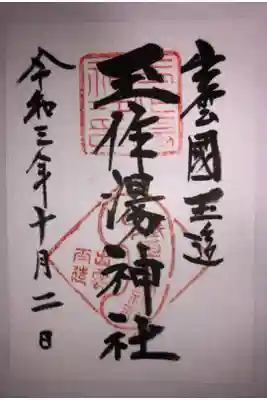 出雲國玉造
玉作湯神社
令和三年十月二日